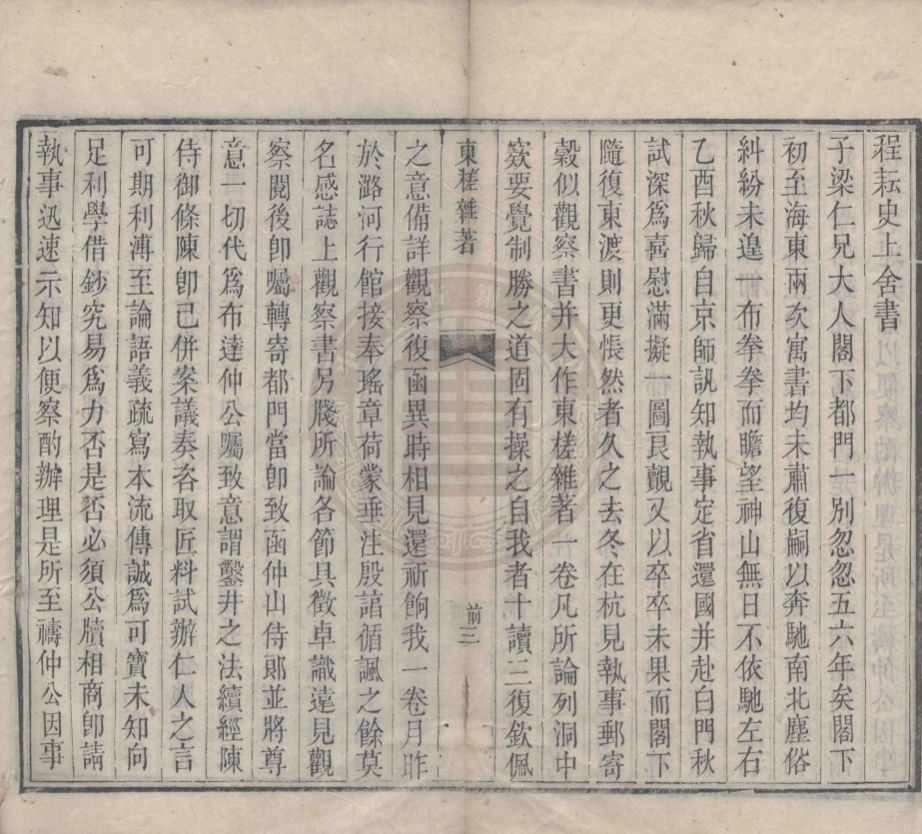 程耘史上舍書
子梁仁兄大人閣下都門一別忽忽五六年矣閣下
初至海東兩次寓書均未肅復嗣以奔馳南北塵俗
糾紛未遑一布拳拳而瞻望神山無日不依馳左右
乙酉秋歸自京師訊知執事定省還國并赴白門秋
試深爲喜慰滿擬一圖良覿又以卒卒未果而閣下
隨復東渡則更悵然者久之去冬在杭見執事郵寄
穀似觀察書并大作東槎雜著一卷凡所論列洞中
窾要覺制勝之道固有操之自我者十讀三復欽佩
東槎雜著
前三
之意備詳觀察復函異時相見還祈餉我一卷月昨
於潞河行館接奉瑤章荷蒙垂注殷諠循諷之餘莫
名感誌上觀察書另牋所論各節具徵卓識遠見觀
察閱後卽囑轉寄都門當卽致函仲山侍郎並將尊
意一切代爲布達仲公囑致意謂鑿井之法續經陳
侍御條陳卽已併案議奏咨取匠料試辦仁人之言
可期利溥至論語義疏寫本流傳誠爲可寶未知向
足利學借鈔究易爲力否是否必須公牘相商卽請
執事迅速示知以便察酌辦理是所至禱仲公因事